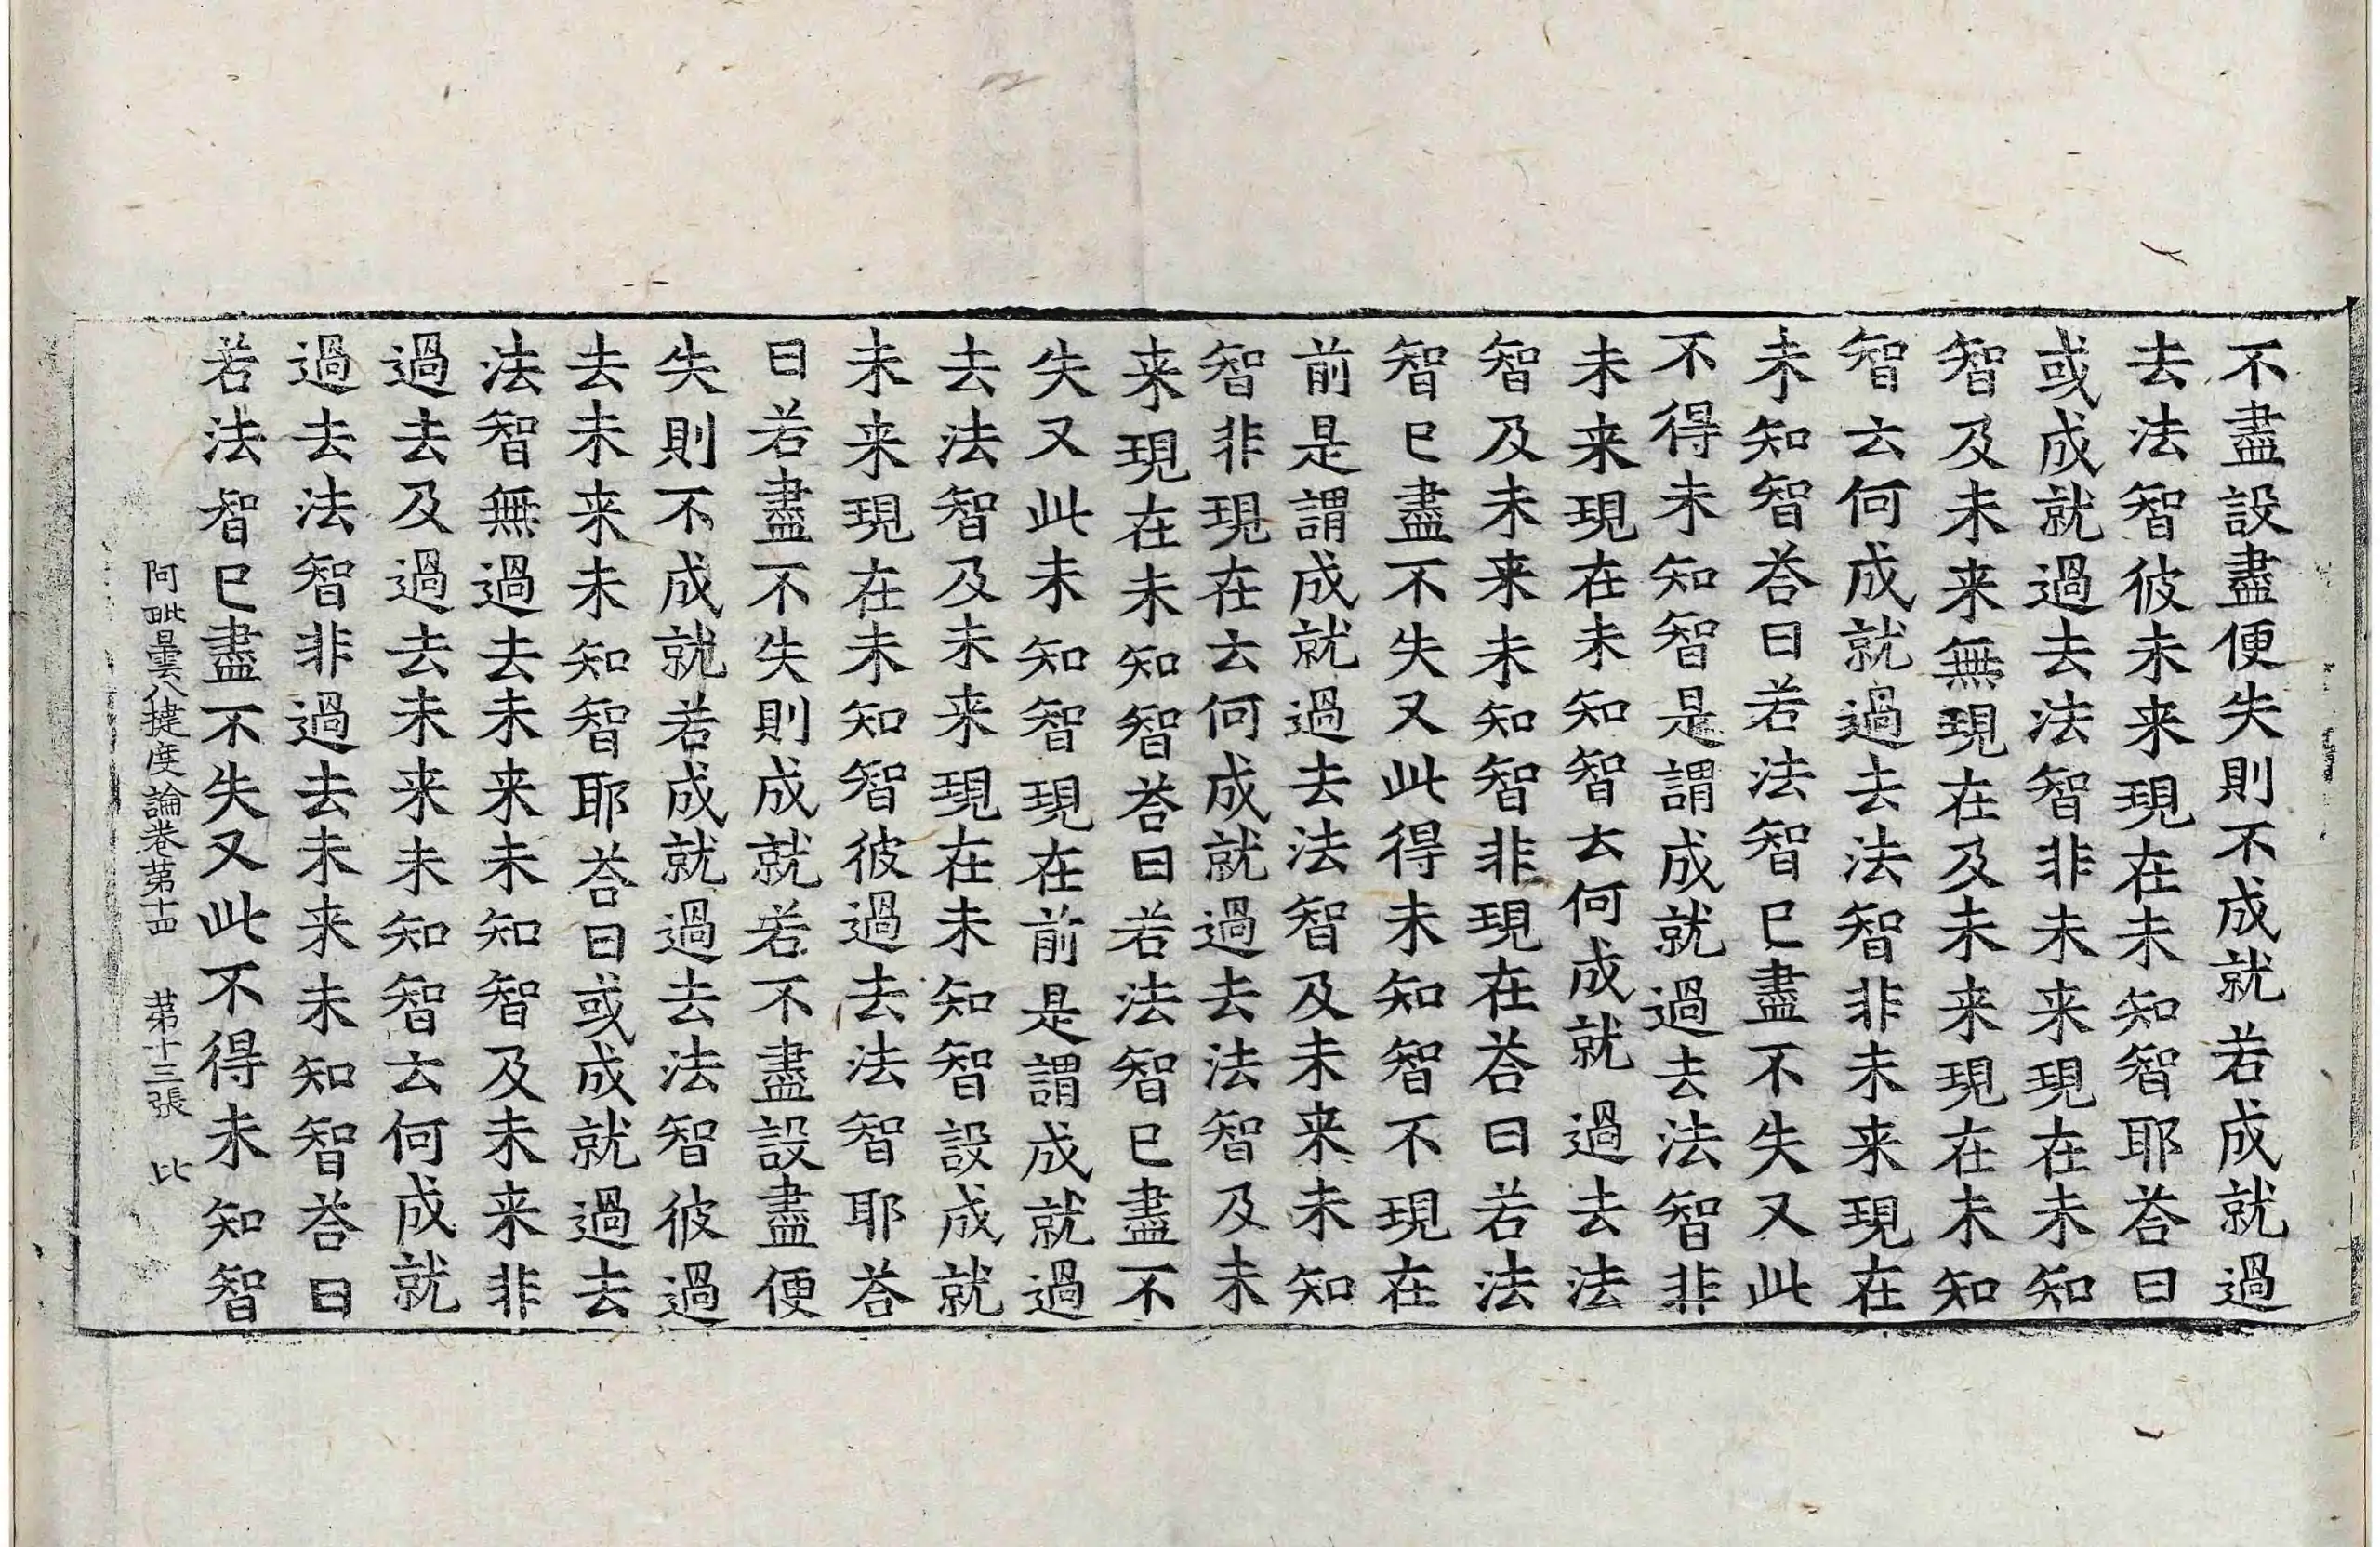 不盡設盡便失則不成就若成就過
去法智彼未来現在未知智耶荅曰
或成就過去法智非未来現在未知
智及未来無現在及未来現在未知
智云何成就過去法智非未来現在
未知智荅曰若法智已盡不失又此
不得未知智是謂成就過去法智非
未来現在未知智云何成就過去法
智及未来未知智非現在荅曰若法
智已盡不失又此得未知智不現在
前是謂成就過去法智及未来未知
智非現在云何成就過去法智及未
来現在未知智荅曰若法智已盡不
失又此未知智現在前是謂成就過
去法智及未来現在未知智設成就
未来現在未知智彼過去法智耶荅
曰若盡不失則成就若不盡設盡便
失則不成就若成就過去法智彼過
去未来未知智耶荅曰或成就過去
法智無過去未来未知智及未来非
過去及過去未来未知智云何成就
過去法智非過去未来未知智荅曰
若法智已盡不失又此不得未知智
阿毗曇八揵度論卷第十四 第十三張 比